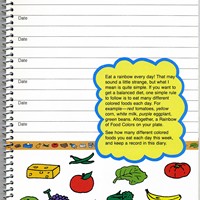 Date
Date
Date
Date
Date
Date
Eat a rainbow every day! That may
sound a little strange, but what I
mean is quite simple. If you want to
get a balanced diet, one simple rule
to follow is to eat many different
colored foods each day. For
example— red tomatoes, yellow
corn, white milk, purple eggplant,
green beans. Altogether, a Rainbow
of Food Colors on your plate.
See how many different colored
foods you eat each day this week,
and keep a record in this diary.